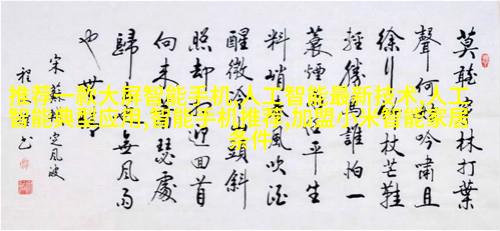 莫聽穿林打葉
聲何妨吟嘯且
徐行竹杖芒鞋
輕勝馬誰怕一
蓑煙雨任平生
料峭春風吹酒
醒微冷山頭斜
照却相迎回首
向来蕭瑟處
歸去也無風雨
也無晴
宋蘇軾定風波
程
推荐一款大屏智能手机,人工智能最新技术,人工
智能典型应用,智能手机推荐,加盟小米智能家居
条件